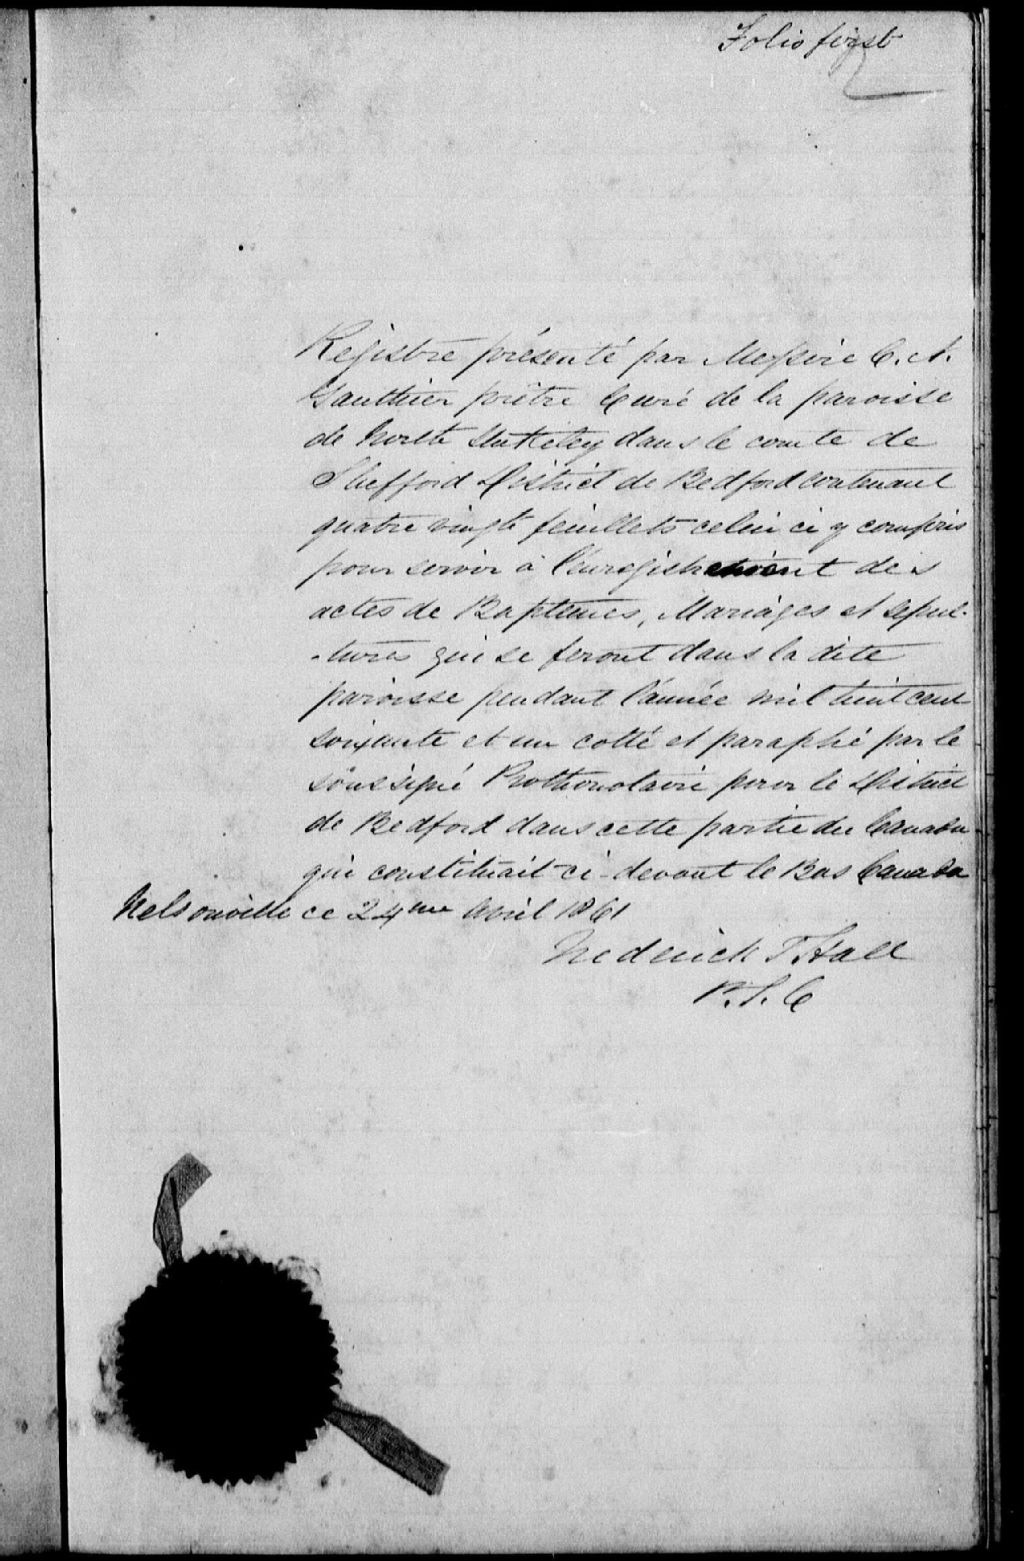 Folio first
Registre présenté par Messire C. A.
Gauthier prêtre Curé de la paroisse
de North Stukeley dans le comte de
Shefford District de Bedford contenant
quatre vingts feuillets celui ci y compris
pour servir à l'enregistrement des
actes de Baptemes, Mariages et sepul-
-tures qui se feront dans la dite
paroisse pendant l'année mil huit cent
soixante et un cotté et paraphé par le
soussigné Prothonotaire pour le District
de Bedford dans cette partie du Canada
qui constituait ci-devant le Bas Canada
Nelsonville ce 24me Avril 1861
Frederick T Hall
P. S. C